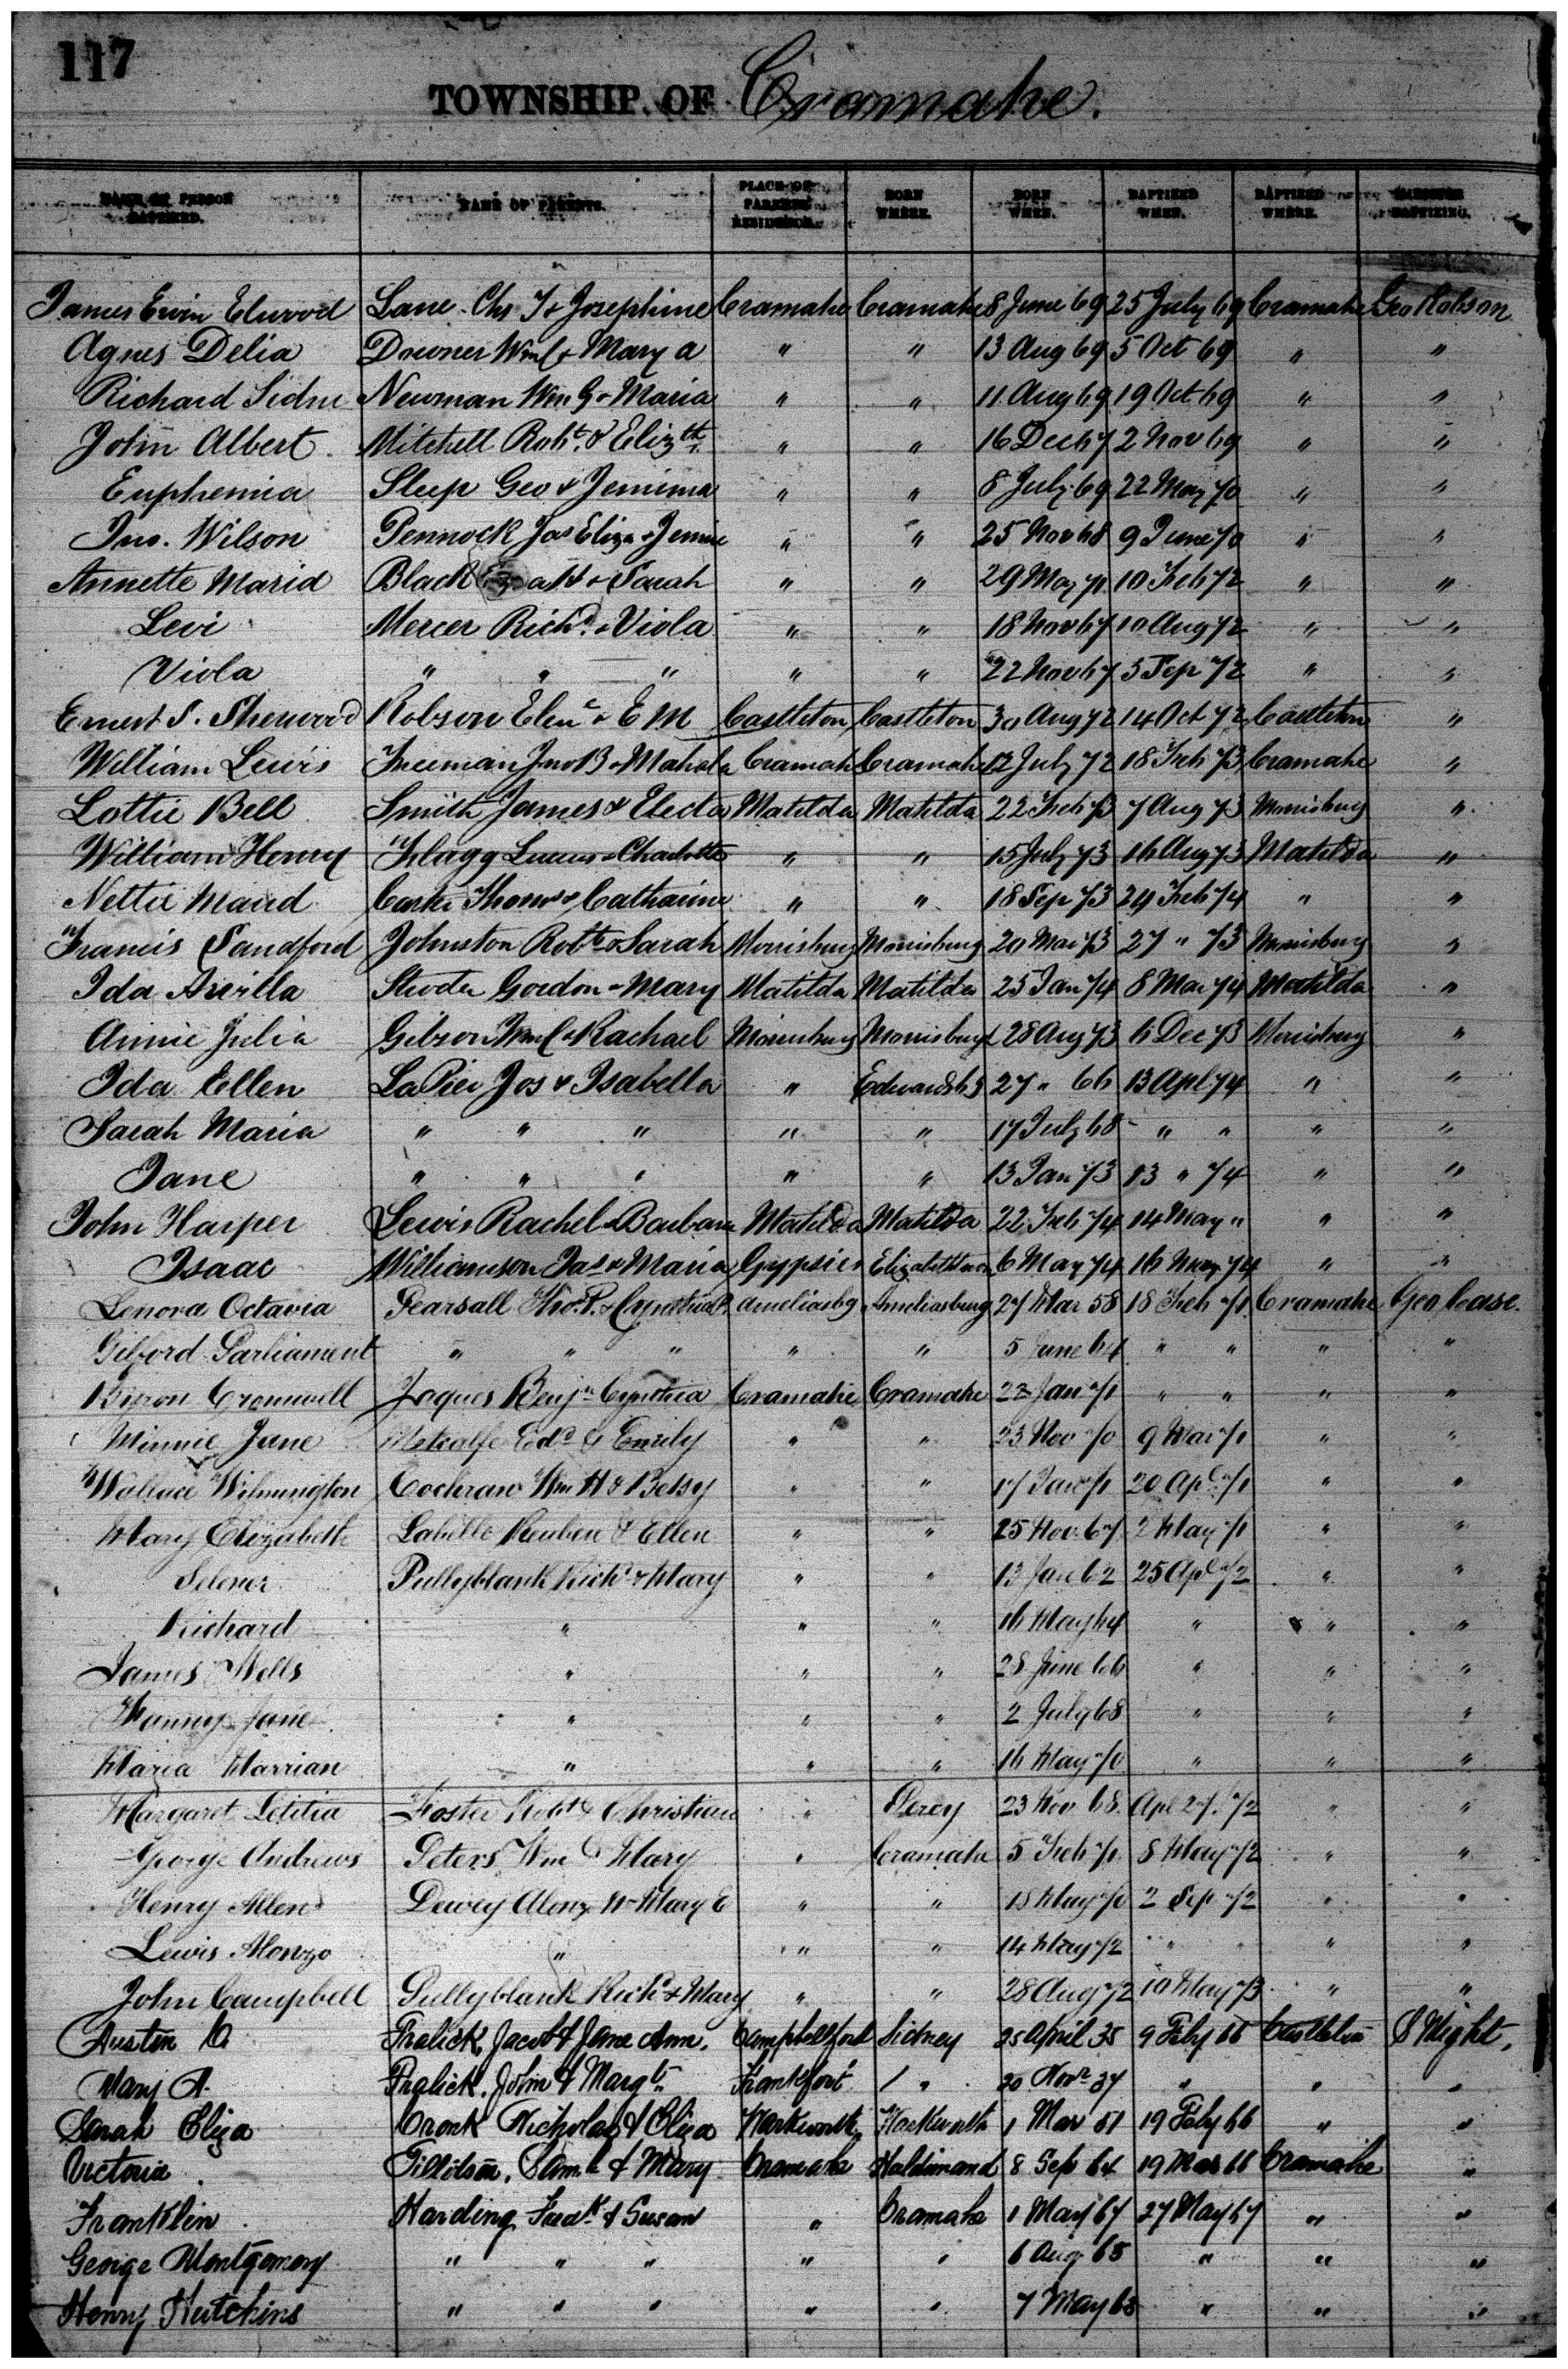 117
TOWNSHIP OF Cramahe.
NAME OF PERSON BAPTIZED. NAME OF PARENTS. PLACE OF PARENTS' RESIDENCE. BORN WHERE. BORN WHEN. BAPTIZED WHEN. BAPTIZED WHERE. MINISTER BAPTIZING.
James Ervin Elwood Lane Chs T & Josephine Cramahe Cramahe 8 June 69 25 July 69 Cramahe Geo Robson
Agnes Delia Downer Wm C & Mary A " " 13 Aug 69 5 Oct 69 " "
Richard Sidne Newman Wm G & Maria " " 11 Aug 69 19 Oct 69 " "
John Albert Mitchell Robt. & Elizth. " " 16 Dec 67 2 Nov 69 " "
Euphemia Sleep Geo & Jemima " " 8 July 69 22 May 70 " "
Jno. Wilson Pennock Jas Eliza & Jennie " " 25 Nov 68 9 June 70 " "
Annette Maria Black & Sarah " " 29 May 71 10 Feb 72 " "
Levi Mercer Richd. & Viola " " 18 Nov 67 10 Aug 72 " "
Viola " " " " " 22 Nov 67 5 Sep 72 " "
Ernest S. Sherwood Robson & E M Castleton Castleton 30 Aug 72 14 Oct 72 Castleton "
William Lewis Freeman Jno B & Mahala Cramah Cramahe 12 July 72 18 Feb 73 Cramahe "
Lottie Bell Smith James & Electa Matilda Matilda 22 Feb 73 7 Aug 73 Morrisburg "
William Henry Flagg Lucius & Charlotte " " 15 July 73 16 Aug 73 Matilda "
Nettie Maud Thomas & Catharine " " 18 Sep 73 24 Feb 74 " "
Francis Sandford Johnston Robt & Sarah Morrisburg Morrisburg 20 Mar 73 27 " 73 Morrisburg "
Ida Gordon & Mary Matilda Matilda 25 Jan 74 8 Mar 74 Matilda "
Annie Julia Gibson Wm C & Rachael Morrisburg Morrisburg 28 Aug 73 6 Dec 73 Morrisburg "
Ida Ellen LaPier Jos & Isabella " Edwardsbg 27 " 66 13 Apl 74 " "
Sarah Maria " " " " " 17 July 68 " " " "
Jane " " " " " 13 Jan 73 13 " 74 " "
John Harper Lewis Rachel & Barbara Matilda Matilda 22 Feb 74 14 May " " "
Isaac Williamson Jas & Maria Gypsies Elizabethtown 6 May 74 16 May 74 " "
Lenora Octavia Pearsall Thos. P. & Cynthia P. Ameliasbg Ameliasburg 27 Mar 58 18 Feb 71 Cramahe Geo Case.
Gilford Parliament " " " " " 5 June 64 " " " "
Byron Cromwell Jaques Benjn Cynthia Cramahe Cramahe 22 Jan 71 " " " "
Minnie Jane Metcalfe Edd & Emily " " 23 Nov 70 9 Mar 71 " "
Wallace Wilmington Cochrane Wm H & Betsy " " 17 Jan 71 20 Apl 71 " "
Mary Elizabeth Labelle Reuben & Ellen " " 25 Nov 67 2 May 71 " "
Selener Pullyblank Richd & Mary " " 13 Jan 62 25 Apl 72 " "
Richard " " " 16 May 64 " " "
James Wells " " " 28 June 66 " " "
Fanny Jane " " " 2 July 68 " " "
Maria Marrian " " " 16 May 70 " " "
Margaret Letitia Foster Robt & Christian " Percy 23 Nov 68 Apl 27. 72 " "
George Andrews Peters Wm & Mary " Cramahe 5 Feb 71 8 May 72 " "
Henry Allen Dewey Alonzo W Mary E " " 18 May 70 2 Sep 72 " "
Lewis Alonzo " " " 14 May 72 " " " "
John Campbell Pullyblank Richd & Mary " " 28 Aug 72 10 May 73 " "
Austin Fralick, Jacob & Jane Ann. Campbellford Sidney 25 April 35 9 Feby 66 Castleton S Might.
Mary A. Fralick, John & Margt. Frankfort " 20 Novr 37 " " "
Sarah Eliza Cronk Nicholas & Eliza Warkworth Warkworth 1 Mar 51 19 Feby 66 " "
Victoria Tillotson, Saml & Mary Cramahe Haldimand 8 Sep 64 19 Mar 66 Cramahe "
Franklin Harding Fredk & Susan " Cramahe 1 May 67 27 May 67 " "
George Montgomery " " " " " 6 Aug 65 " " "
Henry Hutchins " " " " " 7 May 63 " " "